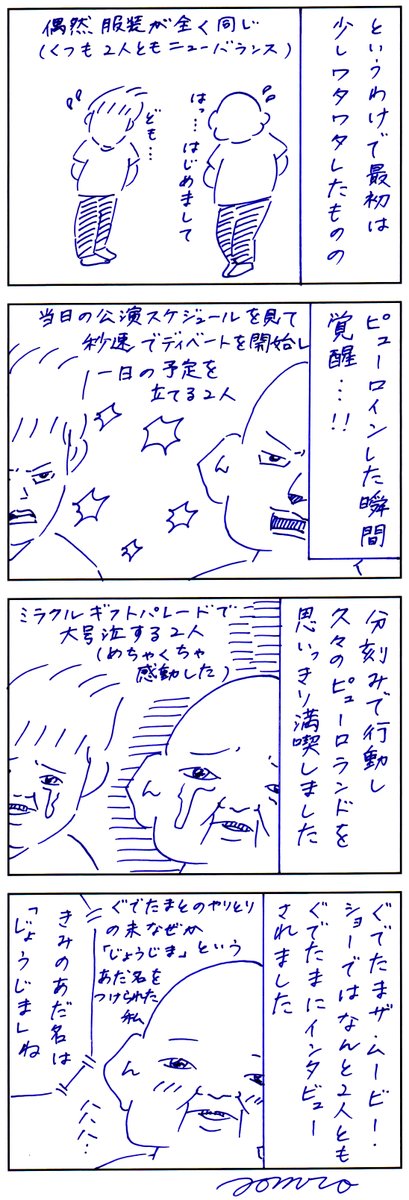 というわけで最初は
少しワタワタしたものの
偶然服装が全く同じ
(くつも2人ともニューバランス)
はっ…はじめまして
ども…
ピューロインした瞬間
覚醒…!!
当日の公演スケジュールを見て
秒速でディベートを開始し
一日の予定を
立てる2人
分刻みで行動し
久々のピューロランドを
思いっきり満喫しました
ミラクルギフトパレードで
大号泣する2人
(めちゃくちゃ
感動した)
ぐでたまザ・ムービー・
ショーではなんと2人とも
ぐでたまにインタビュー
されました
ぐでたまとのやりとり
の末なぜか
「じょうじま」という
あだ名を
つけられた
私
きみのあだ名は
「じょうじま」ね
ハハハ…